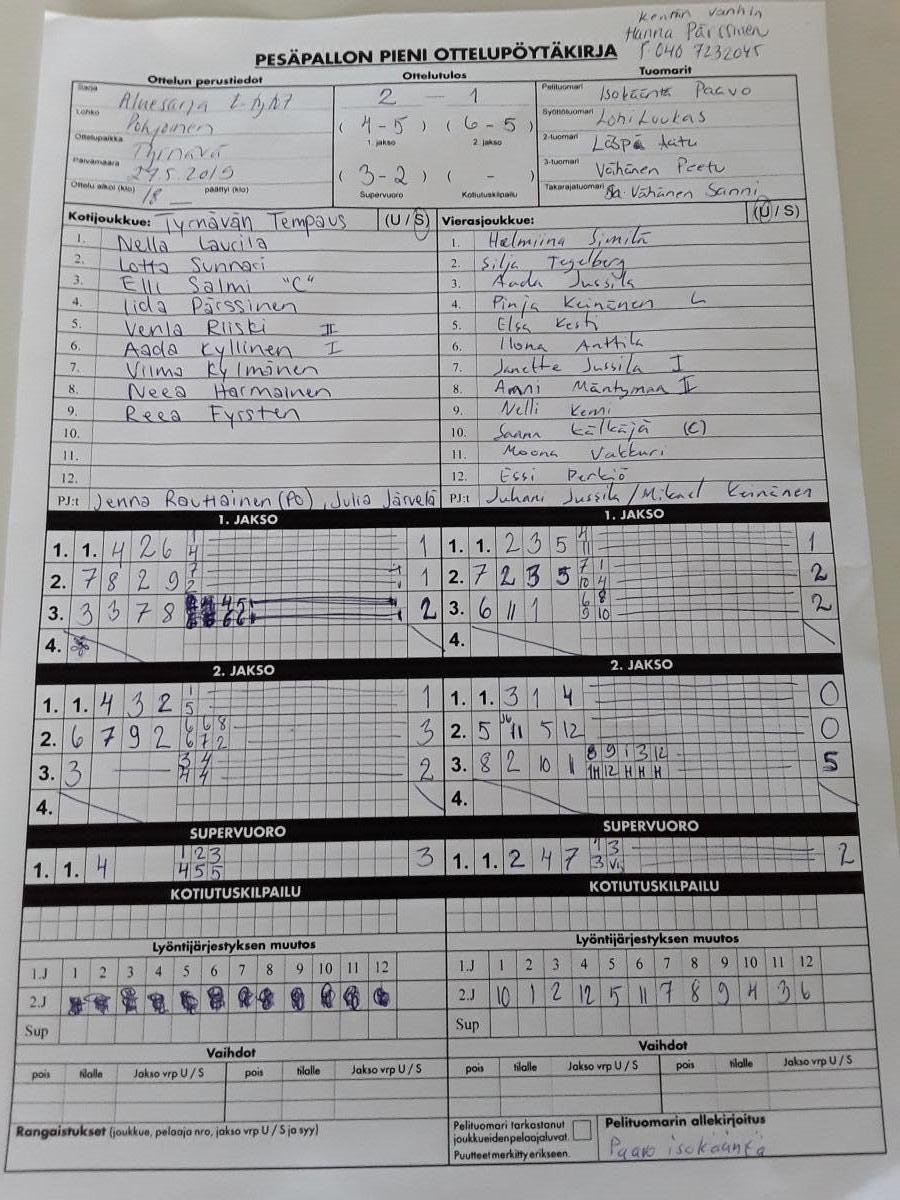 kentän vanhin
Hanna Pärssinen
040 7232045
PESÄPALLON PIENI OTTELUPÖYTÄKIRJA
Ottelun perustiedot
Ottelutulos
Tuomarit
Sarja Aluesarja
Lohko Pohjoinen
Ottelupaikka Tyrnävä
Päivämäärä 27.5.2019
Ottelu alkoi (klo) 18 päättyi (klo)
2 – 1
( 4-5 ) ( 6-5 )
1. jakso 2. jakso
( 3-2 ) ( - )
Supervuoro Kotiutuskilpailu
Pelituomari Isokääntä Paavo
Syöttötuomari Lohi Luukas
2-tuomari Aatu
3-tuomari Vähänen Peetu
Takarajatuomari Vähänen Sanni
Kotijoukkue: Tyrnävän Tempaus (U / S)
1. Nella Laurila
2. Lotta Sunnari
3. Elli Salmi "C"
4. Iida Pärssinen
5. Venla Riiski II
6. Aada Kyllinen I
7. Vilma Kylmänen
8. Neea Harmainen
9. Reea Fyrsten
10.
11.
12.
PJ:t Jenna Rauttainen (PO), Julia Järvelä
Vierasjoukkue: (U / S)
1. Helmiina Similä
2. Silja Tegelberg
3. Aada Jussila
4. Pinja Keinänen L
5. Elsa Kesti
6. Ilona Anttila
7. Janette Jussila I
8. Anni Mäntymaa II
9. Nelli Kenni
10. Saana Kälkäjä (C)
11. Moona Vakkuri
12. Essi Perkiö
PJ:t Juhani Jussila / Mikael Keinänen
1. JAKSO
1. 1. 4 2 6 1 4 1
2. 7 8 2 9 7 2 1
3. 3 3 7 8 4 5 6 6 2
4.
1. JAKSO
1. 1. 2 3 5 4 11 1
2. 7 2 3 5 7 1 10 4 2
3. 6 11 1 6 8 9 10 2
4.
2. JAKSO
1. 1. 4 3 2 1 5 1
2. 6 7 9 2 6 6 8 6 7 2 3
3. 3 3 4 4 4 2
4.
2. JAKSO
1. 1. 3 1 4 0
2. 5 11 5 12 0
3. 8 2 10 1 8 9 1 3 12 1H 12 H H H 5
4.
SUPERVUORO
1. 1. 4 1 2 3 4 5 5 3
SUPERVUORO
1. 1. 2 4 7 1 3 3 2
KOTIUTUSKILPAILU
KOTIUTUSKILPAILU
Lyöntijärjestyksen muutos
1.J 1 2 3 4 5 6 7 8 9 10 11 12
2.J
Sup
Lyöntijärjestyksen muutos
1.J 1 2 3 4 5 6 7 8 9 10 11 12
2.J 10 1 2 12 5 11 7 8 9 4 3 6
Sup
Vaihdot
pois tilalle Jakso vrp U / S pois tilalle Jakso vrp U / S
Vaihdot
pois tilalle Jakso vrp U / S pois tilalle Jakso vrp U / S
Rangaistukset (joukkue, pelaaja nro, jakso vrp U / S ja syy)
Pelituomari tarkastanut
joukkueiden pelaajaluvat.
Puutteet merkitty erikseen.
Pelituomarin allekirjoitus
Paavo isokääntä